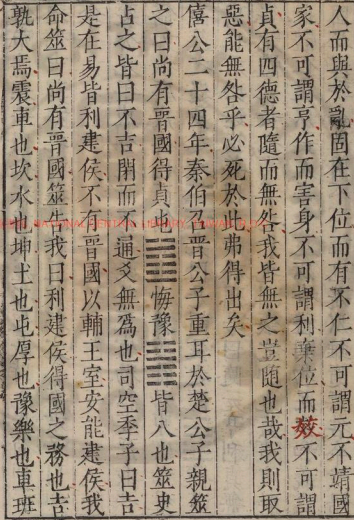 人而與於亂固在下位而有不仁不可謂元不靖國
家不可謂亨作而害身不可謂利棄位而效不可謂
貞有四德者隨而無咎我皆無之豈隨也哉我則取
惡能無咎乎必死於此弗得出矣
僖公二十四年秦伯召晉公子重耳於楚公子親筮
之曰尚有晉國得貞屯䷂悔豫䷏皆八也筮史
占之皆曰不吉閉而不通爻無為也司空季子曰吉
是在易皆利建侯不有晉國以輔王室安能建侯我
命筮曰尚有晉國筮告我曰利建侯得國之務也吉
孰大焉震車也坎水也坤土也屯厚也豫樂也車班